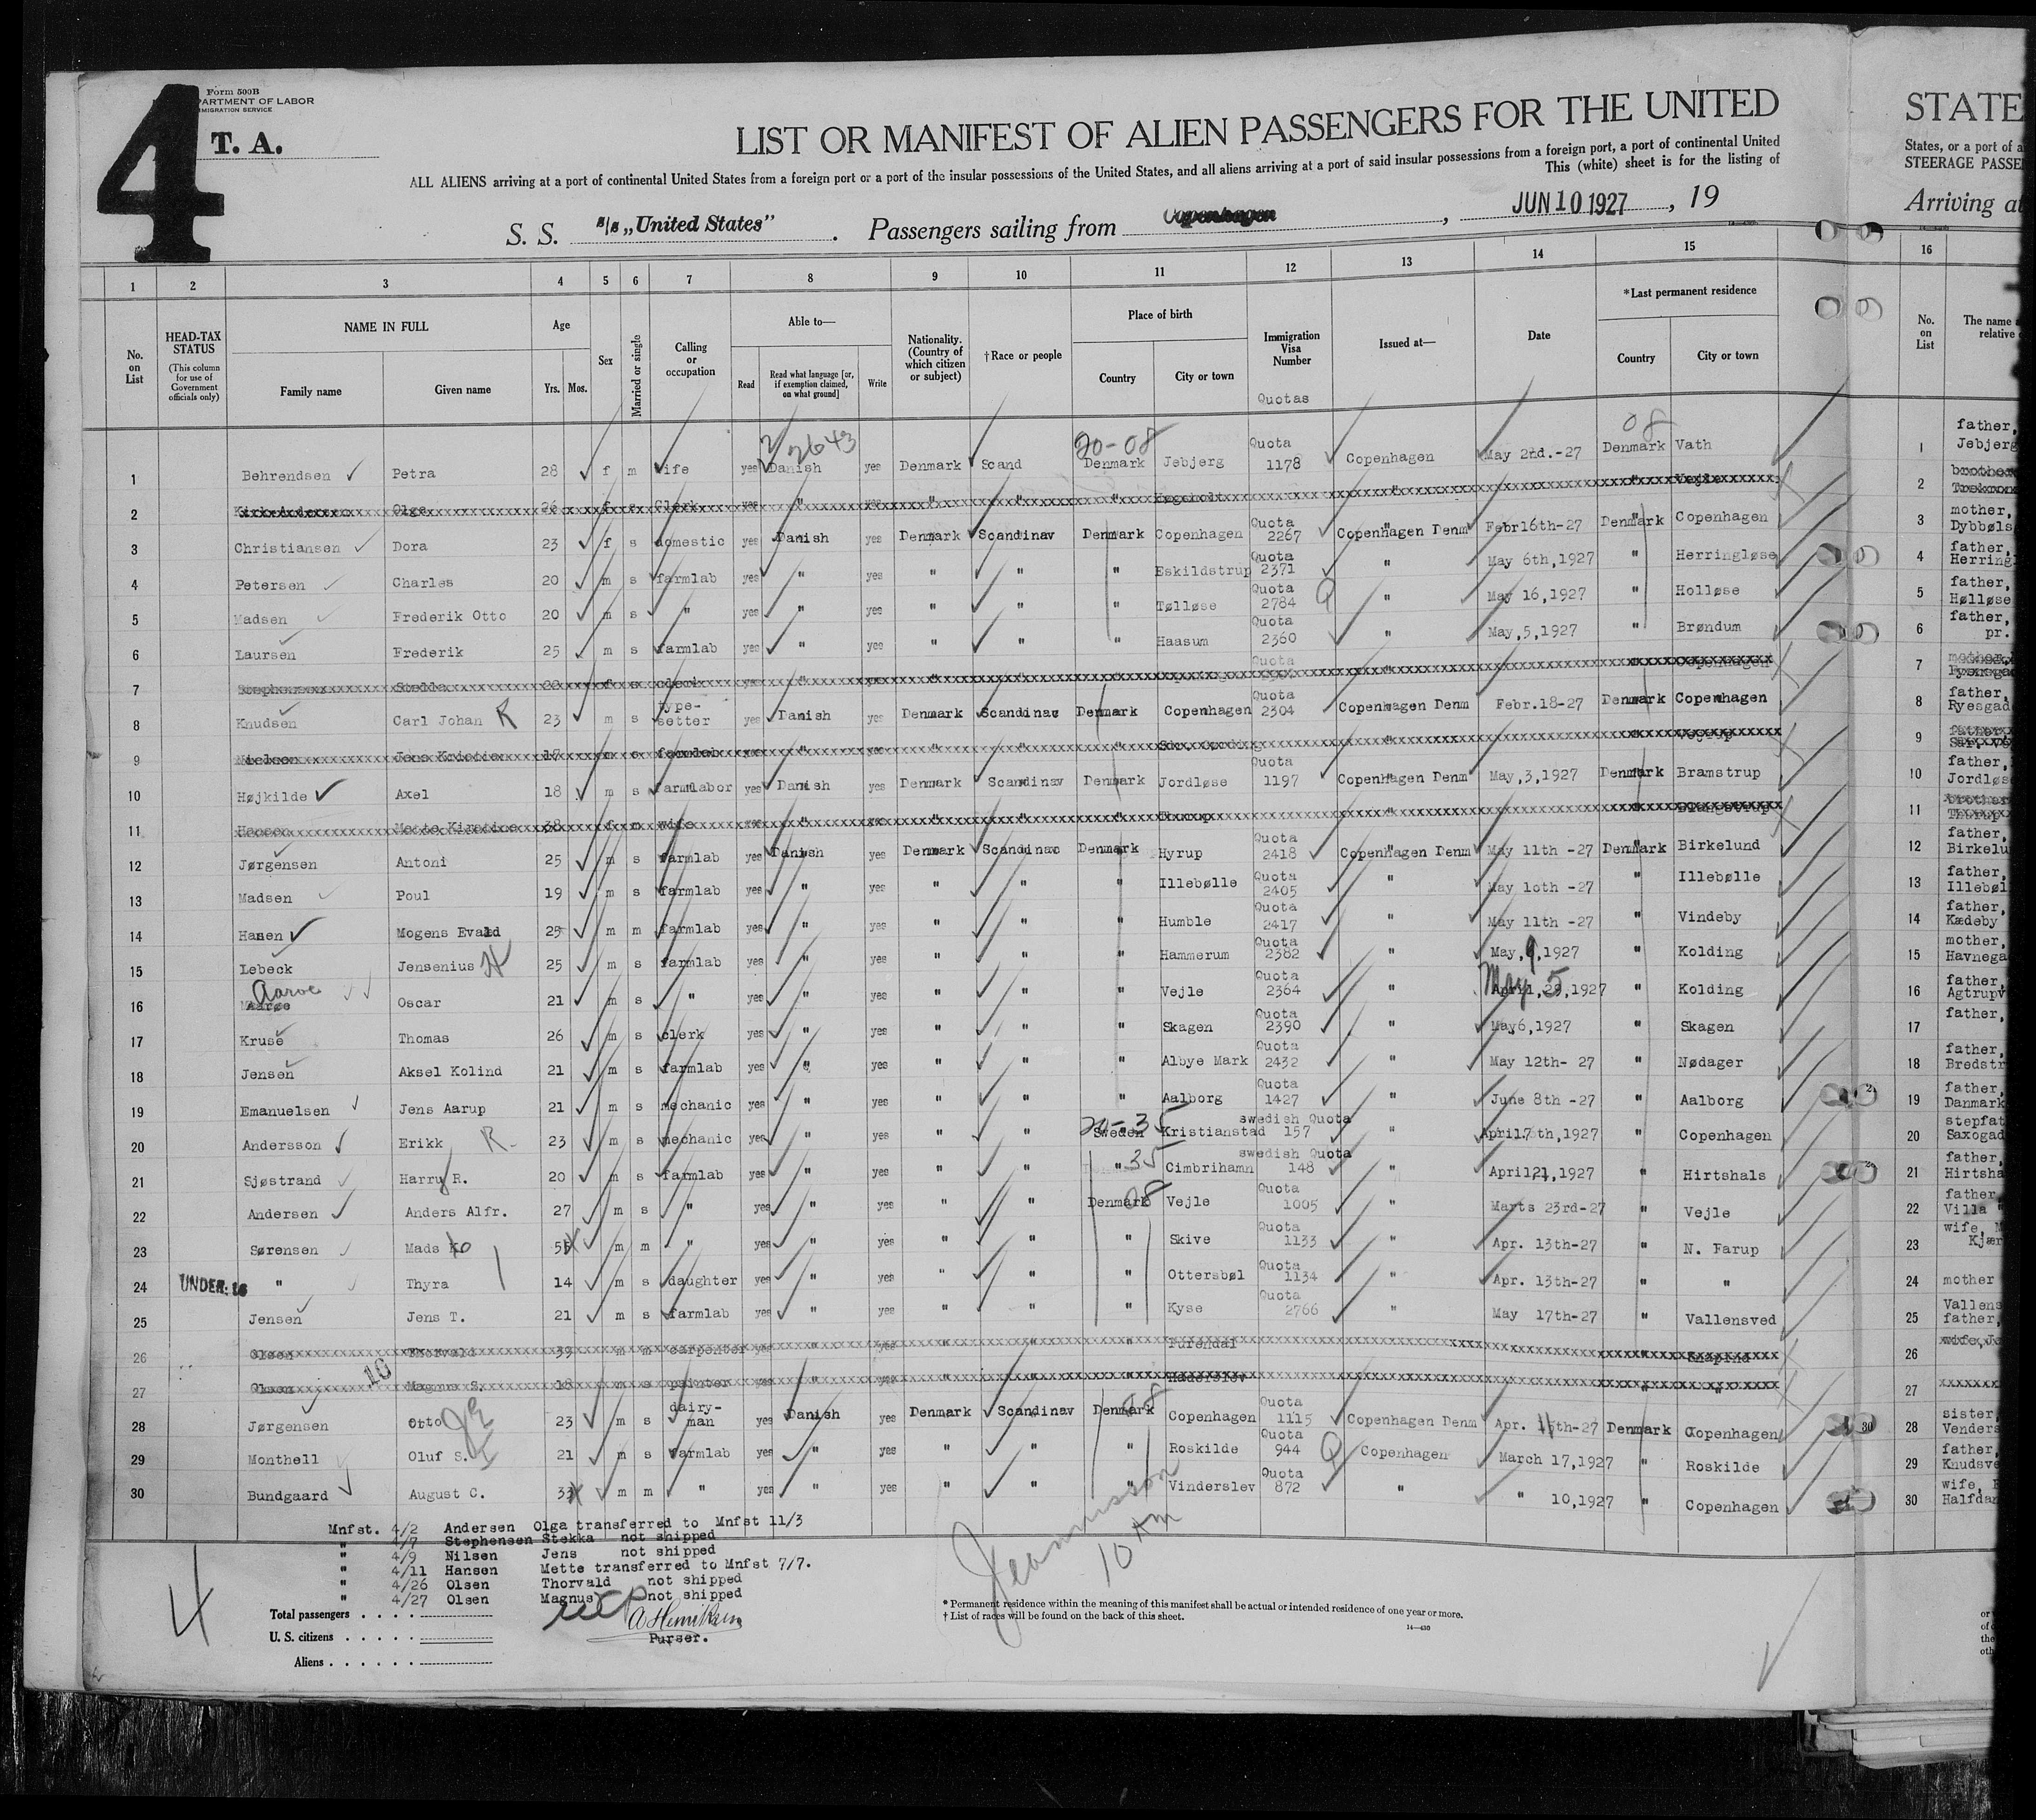 Form 500B
DEPARTMENT OF LABOR
IMMIGRATION SERVICE
4
T. A.
LIST OR MANIFEST OF ALIEN PASSENGERS FOR THE UNITED
ALL ALIENS arriving at a port of continental United States from a foreign port or a port of the insular possessions of the United States, and all aliens arriving at a port of said insular possessions from a foreign port, a port of continental United
This (white) sheet is for the listing of
S. S. s/s „United States" . Passengers sailing from Copenhagen , JUN 10 1927 , 19
STATE
States, or a port of a
STEERAGE PASSE
Arriving at
1 2 3 4 5 6 7 8 9 10 11 12 13 14 15 16
No. on List
HEAD-TAX STATUS (This column for use of Government officials only)
NAME IN FULL Family name Given name
Age Yrs. Mos.
Sex
Married or single
Calling or occupation
Able to— Read Read what language [or, if exemption claimed, on what ground] Write
Nationality. (Country of which citizen or subject)
†Race or people
Place of birth Country City or town
Immigration Visa Number Quotas
Issued at—
Date
*Last permanent residence Country City or town
No. on List
The name
relative
2 2643 20-08 08
1 Behrendsen Petra 28 f m wife yes Danish yes Denmark Scand Denmark Jebjerg Quota 1178 Copenhagen May 2nd.-27 Denmark Vath 1 father, Jebjerg
2 Olga 26 f s Clerk yes " yes " " " " " Vejle 2 brother
3 Christiansen Dora 23 f s domestic yes Danish yes Denmark Scandinav Denmark Copenhagen Quota 2267 Copenhagen Denm Febr16th-27 Denmark Copenhagen 3 mother, Dybbøls
4 Petersen Charles 20 m s farmlab yes " yes " " " Eskildstrup Quota 2371 " May 6th,1927 " Herringløse 4 father, Herringl
5 Madsen Frederik Otto 20 m s " yes " yes " " " Tølløse Quota 2784 " May 16,1927 " Holløse 5 father, Hølløse
6 Laursen Frederik 25 m s farmlab yes " yes " " " Haasum Quota 2360 " May,5,1927 " Brøndum 6 father, pr.
7 Stephensen Stekka 22 f s yes " yes " " " Quota " " Copenhagen 7 mother,
8 Knudsen Carl Johan R 23 m s type-setter yes Danish yes Denmark Scandinav Denmark Copenhagen Quota 2304 Copenhagen Denm Febr.18-27 Denmark Copenhagen 8 father, Ryesgad
9 Nielsen Jens Kristian 17 m s farmlab yes " yes " " " " " Vejrup 9 father
10 Højkilde Axel 18 m s farmlabor yes Danish yes Denmark Scandinav Denmark Jordløse Quota 1197 Copenhagen Denm May,3,1927 Denmark Bramstrup 10 father, Jordløse
11 Hansen Mette Kirstine 38 f m wife yes " yes " " " " " 11 brother
12 Jørgensen Antoni 25 m s farmlab yes Danish yes Denmark Scandinav Denmark Hyrup Quota 2418 Copenhagen Denm May 11th -27 Denmark Birkelund 12 father, Birkelu
13 Madsen Poul 19 m s farmlab yes " yes " " " Illebølle Quota 2405 " May 1oth -27 " Illebølle 13 father, Illebøl
14 Hasen Mogens Evald 25 m m farmlab yes " yes " " " Humble Quota 2417 " May 11th -27 " Vindeby 14 father, Kædeby
15 Lebeck Jensenius 25 m s farmlab yes " yes " " " Hammerum Quota 2382 " May,9,1927 " Kolding 15 mother, Havnega
16 Aaroe Oscar 21 m s " yes " yes " " " Vejle Quota 2364 " May 5 April,29,1927 " Kolding 16 father, Agtrupv
17 Kruse Thomas 26 m s clerk yes " yes " " " Skagen Quota 2390 " May6,1927 " Skagen 17 father,
18 Jensen Aksel Kolind 21 m s farmlab yes " yes " " " Albye Mark Quota 2432 " May 12th- 27 " Nødager 18 father, Bredstr
19 Emanuelsen Jens Aarup 21 m s mechanic yes " yes " " " Aalborg Quota 1427 " June 8th -27 " Aalborg 19 father, Danmark
20 Andersson Erikk R- 23 m s mechanic yes " yes " " 20-35 Sweden Kristianstad swedish Quota 157 " April7th,1927 " Copenhagen 20 stepfat Saxogad
21 Sjøstrand Harry R. 20 m s farmlab yes " yes " " " 35 Cimbrihamn swedish Quota 148 " April21,1927 " Hirtshals 21 father, Hirtsha
22 Andersen Anders Alfr. 27 m s " yes " yes " " Denmark 08 Vejle Quota 1005 " Marts 23rd-27 " Vejle 22 father, Villa
23 Sørensen Mads Ko 55 m m " yes " yes " " " Skive Quota 1133 " Apr. 13th-27 " N. Farup 23 wife, M Kjær
24 UNDER: 16 " Thyra 14 m s daughter yes " yes " " " Ottersbøl Quota 1134 " Apr. 13th-27 " " 24 mother
25 Jensen Jens T. 21 m s farmlab yes " yes " " " Kyse Quota 2766 " May 17th-27 " Vallensved 25 Vallens father,
26 Olsen Thorvald 39 m m carpenter yes " yes " " " Furendal " 26 wife, Je
27 Olsen 10 Magnus S. 18 m s painter yes " yes " " " Haderslev " " 27
28 Jørgensen Otto 23 m s dairy-man yes Danish yes Denmark Scandinav Denmark 08 Copenhagen Quota 1115 Copenhagen Denm Apr. 15th-27 Denmark Copenhagen 30 28 sister, Venders
29 Monthell Oluf S. 21 m s farmlab yes " yes " " " Roskilde Quota 944 Copenhagen March 17,1927 " Roskilde 29 father, Knudsve
30 Bundgaard August C. 33 m m " yes " yes " " " Vinderslev Quota 872 " " 10,1927 " Copenhagen 30 wife, Halfdan
Mnfst. 4/2 Andersen Olga transferred to Mnfst 11/3
" 4/7 Stephensen Stekka not shipped
" 4/9 Nilsen Jens not shipped
" 4/11 Hansen Mette transferred to Mnfst 7/7.
" 4/26 Olsen Thorvald not shipped
" 4/27 Olsen Magnus not shipped
4
Total passengers . . . .
U. S. citizens . . . . .
Aliens . . . . . .
A Henriksen
Purser.
10 AM
* Permanent residence within the meaning of this manifest shall be actual or intended residence of one year or more.
† List of races will be found on the back of this sheet.
14—430